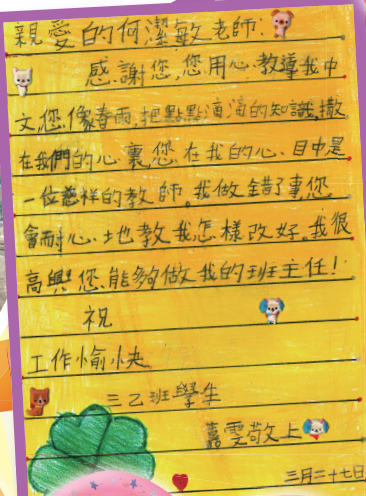 親愛的何潔敏老師：
感謝您，您用心教導我中
文，您像春雨，把點點滴滴的知識，撒
在我們的心裏，您在我的心目中是
一位慈祥的教師。我做錯了事，您
會耐心地教我怎樣改好。我很
高興您能夠做我的班主任！
祝
工作愉快
三乙班學生
嘉雯敬上
三月二十七日